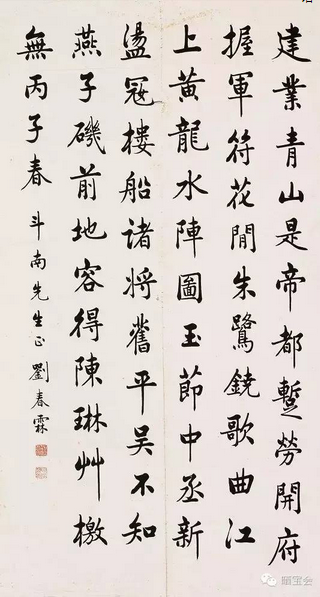 建業青山是帝都蹔勞開府
握軍符花閒朱鷺鐃歌曲江
上黃龍水陣圖玉節中丞新
盪寇樓船諸將舊平吳不知
燕子磯前地容得陳琳艸檄
無丙子春 斗南先生正 劉春霖
晒宝会